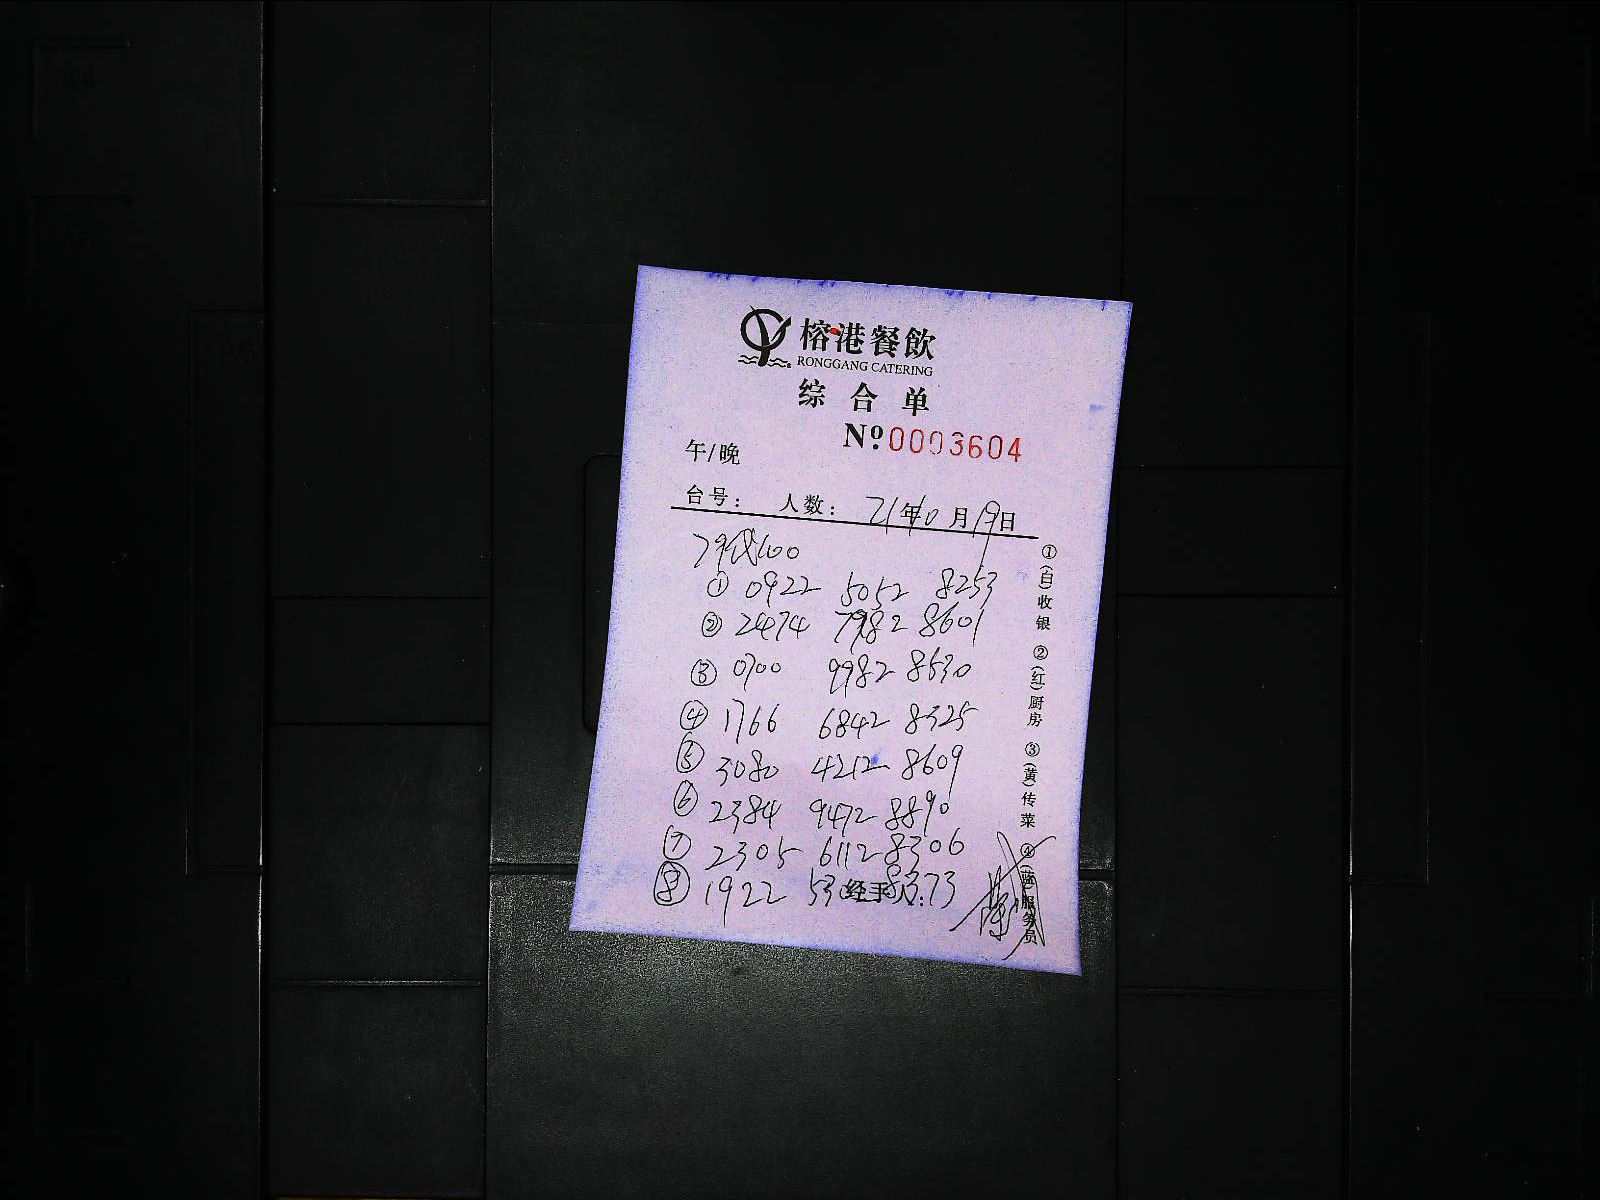 榕港餐飲
RONGGANG CATERING
综合单
Nº0003604
午/晚
台号： 人数： 21年10月19日
79代100
① 0922 5052 8253
② 2474 7982 8601
③ 0700 9982 8530
④ 1766 6842 8325
⑤ 3080 4212 8609
⑥ 2384 9472 8890
⑦ 2305 6112 8306
⑧ 1922 8373
经手人：
①(白)收银 ②(红)厨房 ③(黄)传菜 ④(蓝)服务员